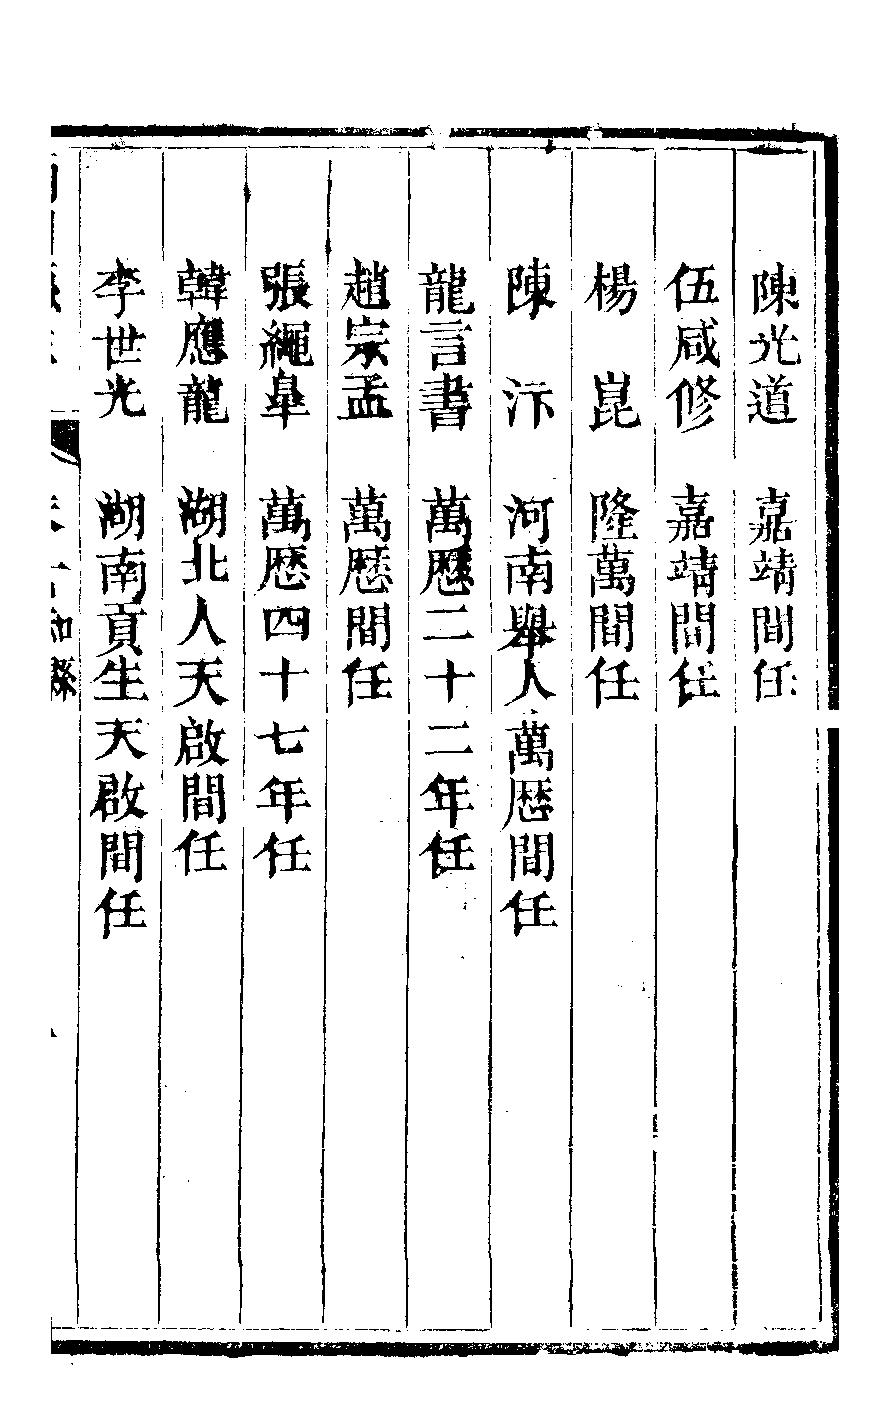 陳光道 嘉靖間任
伍咸修 嘉靖間任
楊 崑 隆萬間任
陳 汴 河南舉人萬歷間任
龍言書 萬歷二十二年任
趙宗孟 萬歷間任
張繩臯 萬歷四十七年任
韓應龍 湖北人天啟間任
李世光 湖南貢生天啟間任
知縣